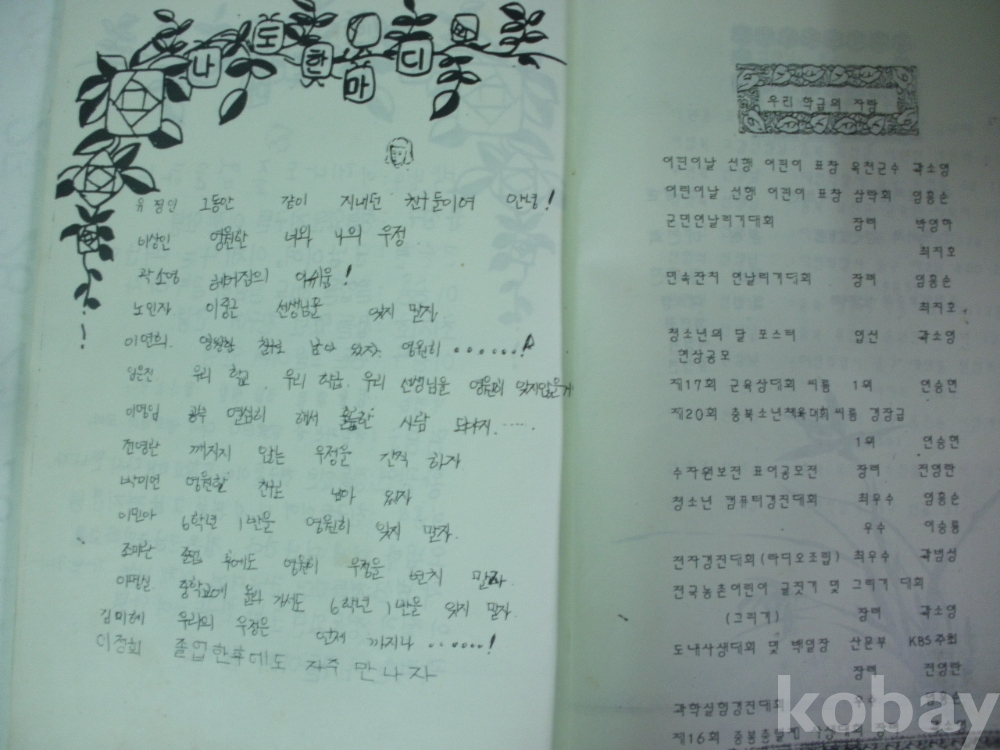 나도 한마디
유정인 그동안 같이 지내던 친구들이여 안녕!
이상인 영원한 너와 나의 우정
곽소영 헤어짐의 아쉬움!
노인자 이중근 선생님을 잊지 말자
이연희. 영원한 친구로 남아 있자. 영원히 ......!
임은진 우리 학교. 우리 학급. 우리 선생님을 영원히 잊지않을게
이명님 공부 열심히 해서 훌륭한 사람 되야지.....
전영란 깨지지 않는 우정을 간직 하자
박미연 영원한 친구로 남아 있자
이민아 6학년 1반을 영원히 잊지 말자.
조미란 졸업 후에도 영원히 우정을 변치 말자.
이명실 중학교에 올라 가서도 6학년 1반을 잊지 말자.
김미혜 우리의 우정은 언제 까지나 ......!
이정희 졸업한후에도 자주 만나자
우리 학급의 자랑
어린이날 선행 어린이 표창 옥천군수 곽소영
어린이날 선행 어린이 표창 삼락회 임홍순
군연날리기대회 장려 박영하
최지호
민속잔치 연날리기대회 장려 임홍순
최지호
청소년의 달 포스터 입선 곽소영
현상공모
제17회 군육상대회 씨름 1위 연승현
제20회 충북소년체육대회씨름 경장급
1위 연승현
수자원보전 표어공모전 장려 전영란
청소년 컴퓨터경진대회 최우수 임홍순
우수 이승룡
전자경진대회(라디오조립) 최우수 곽병성
전국농촌어린이 글짓기 및 그리기 대회
(그리기) 장려 곽소영
도내사생대회 및 백일장 산문부 KBS주최
장려 전영란
과학실험경진대회 우수
제16회
kobay